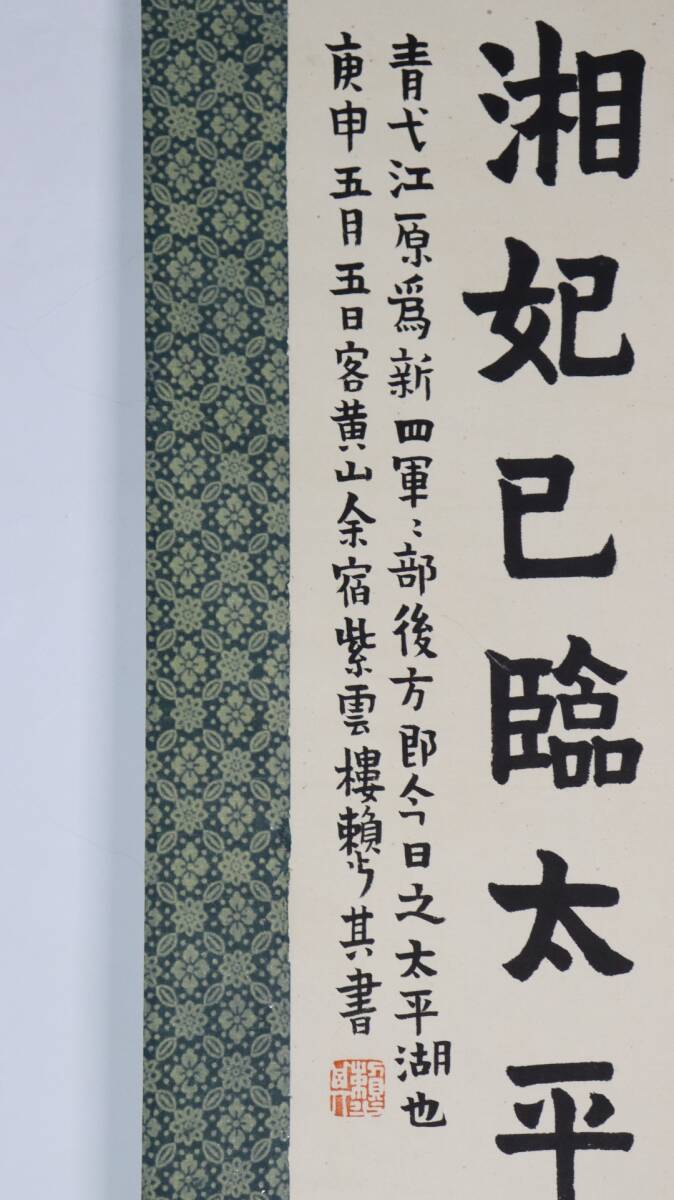 湘妃已臨太平
青弋江原爲新四軍〻部後方即今日之太平湖也
庚申五月五日客黄山余宿紫雲樓賴少其書